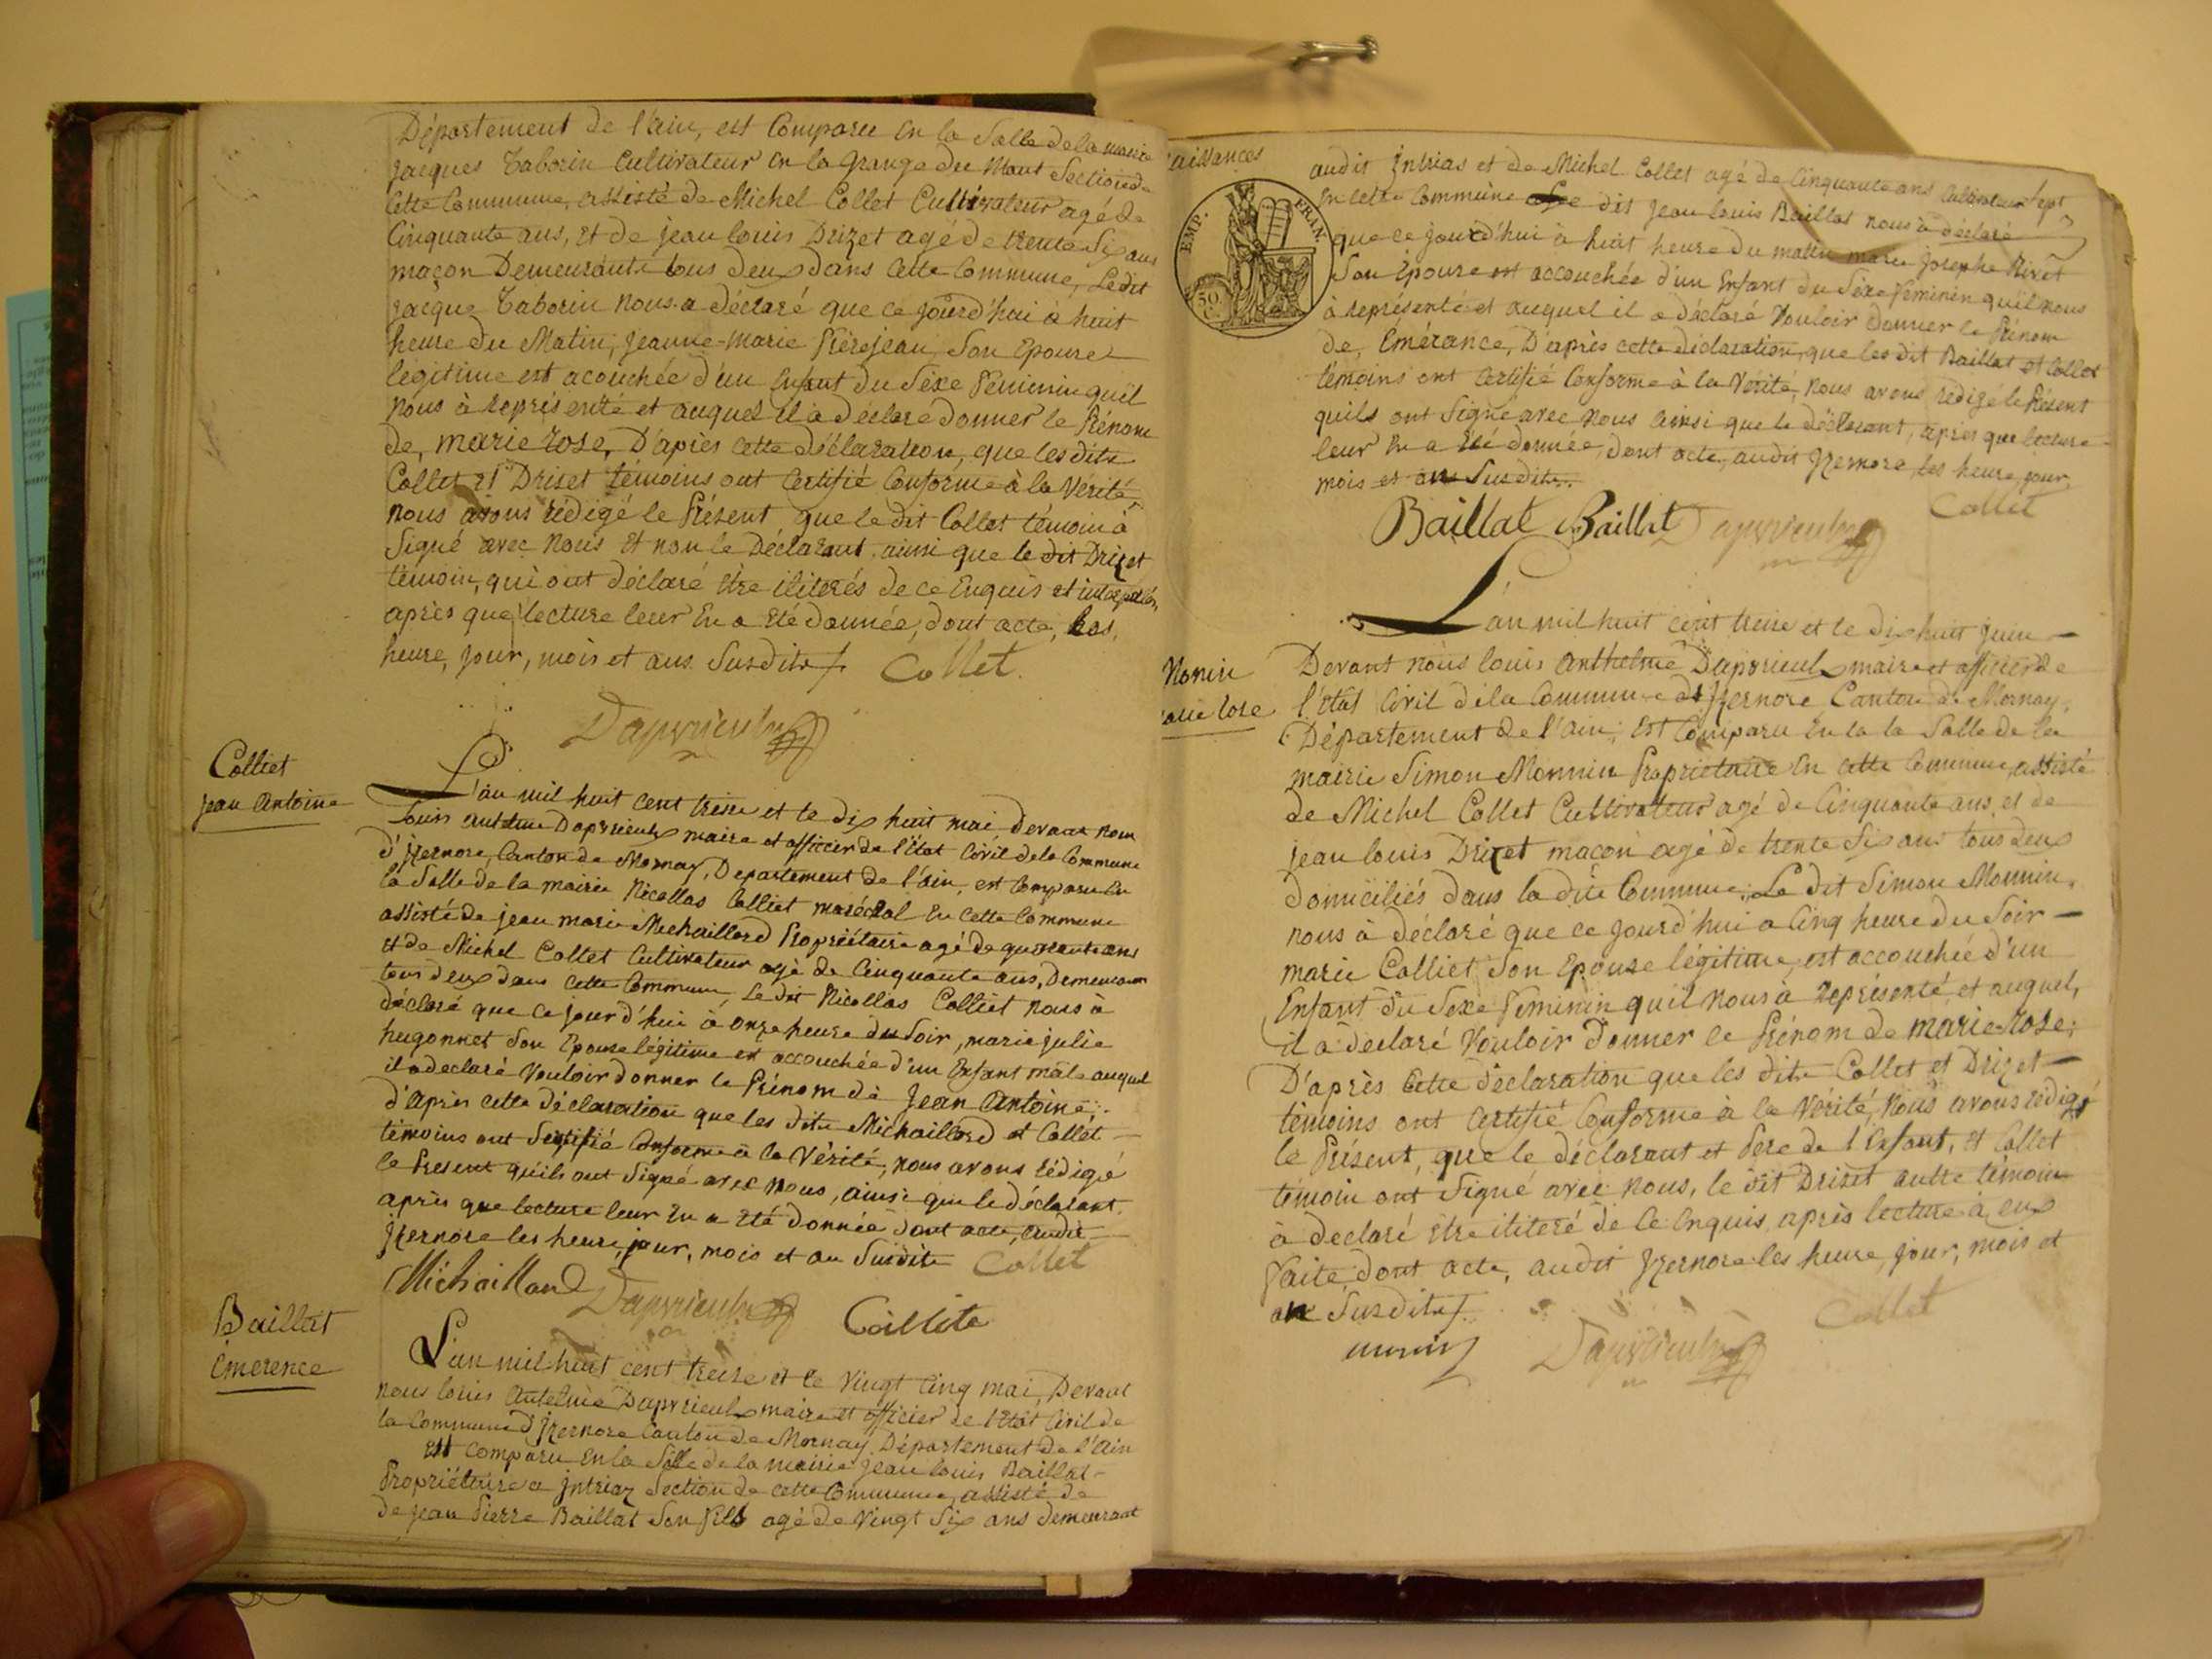 Département de l'ain, est Comparu en la Salle de la mairie
jacques Taborin Cultivateur en la grange du Mont Section de
Cette Commune, assisté de Michel Collet Cultivateur agé de
Cinquante ans, et de jean louis Drizet agé de trente Six ans
maçon Demeurants tous deux dans Cette Commune, Ledit
jacque Taborin nous a déclaré que ce jourd'hui à huit
heure du Matin, jeanne-marie Pérèjean, Son Epouse
légitime est acouchée d'un Enfant du Sèxe Féminin quil
nous à représenté et auquel il à déclaré donner le Prénom
de, marie rose, D'après cette déclaration, que les dits
Collet et Driset témoins ont Certifié Conforme à la Vérité,
nous avons rédigé le Présent, que le dit Collet témoin à
Signé avec nous et non le Déclarant, ainsi que le dit Drizet
témoin, qui ont déclaré être iliterés de ce Enquis et
après que lecture leur En a Eté donnée, dont acte, les,
heure, jour, mois et ans Susdits. Collet
Dapvrieulx
Colliet
jean Antoine
L'an mil huit cent treise et le dix huit mai, devant nous
Louis antelme Dapvrieulx maire et officier de l'Etat Civil de la Commune
d'jzernore, Canton de Mornay, Departement de l'ain, est Comparu En
la Salle de la mairie Nicollas Colliet maréchal En cette Commune
assisté de jean marie Michaillard Propriétaire agé de quarante ans
et de Michel Collet Cultivateur agé de Cinquante ans, Demeurant
tous deux dans cette Commune, Le dit Nicollas Colliet nous à
déclaré que ce jour d'hui à onze heure du Soir, marie julie
hugonnet Son Epouse légitime est accouchée d'un Enfant mâle auquel
il a declaré Vouloir donner le Prénom de Jean Antoine.
d'après cette déclaration que les dits Michaillard et Collet
témoins ont Certifié Conforme à la Vérité, nous avons rédigé
le Present quils ont Signé avec nous, ainsi que le déclarant,
après que lecture leur En a Eté donnée dont acte, audit
jzernore les heure, jour, mois et an Susdits Collet
Michaillard Dapvrieulx Colliete
Baillat
Emerence
L'an mil huit cent treise et le Vingt Cinq mai, Devant
nous louis Antelme Dapvrieulx maire et officier de l'Etat Civil de
la Commune d'jzernore Canton de Mornay, Département de l'ain
Est Comparu En la Salle de la mairie jean louis Baillat
Propriétaire a jntriaz Section de cette Commune, assisté de
de jean Pierre Baillat Son fils agé de Vingt Six ans demeurant
aissances
Sept
EMP. FRAN.
50. C.
audit jntrias et de Michel Collet agé de Cinquante ans Cultivateur
En cette Commune dit jean louis Baillat nous à déclaré
que ce jourd'hui à huit heure du matin marie josephe Rivet
Son Epouse est accouchée d'un Enfant du Séxe Féminin quil nous
à représenté et auquel il a déclaré Vouloir donner le Prénom
de, Emérance, D'après cette déclaration, que les dit Baillat et Collet
témoins ont Certifié Conforme à la Vérité, nous avons rédigé le Présent
quils ont Signé avec nous ainsi que le déclarant, après que lecture
leur En a Eté donnée, dont acte, audit jzernore les heure jour,
mois et an Susdits.
Collet
Baillat Baillat Dapvrieulx
L'an mil huit cent treise et le dix huit juin
Monin
arie Rose
Devant nous louis Anthelme Dapvrieulx maire et officier de
l'Etat Civil de la Commune d'jzernore Canton de Mornay,
Département de l'ain, Est Comparu En la la Salle de la
mairie Simon Monnin Proprietaire En cette Commune, assisté
de Michel Collet Cultivateur agé de Cinquante ans, et de
jean louis Drizet maçon agé de trente Six ans tous deux
domiciliés dans la dite Commune, Le dit Simon Monnin,
nous à déclaré que ce jourd'hui a Cinq heure du Soir
marie Colliet Son Epouse légitime, est accouchée d'un
Enfant du Sexe Feminin quil nous à représenté et auquel,
il à déclaré Vouloir donner le Prénom de marie-rose;
D'après Cette déclaration que les dits Collet et Drizet
témoins ont Certifié Conforme à la Vérité, nous avons rédigé
le Présent, que le déclarant et Pere de l'Enfant, et Collet
témoin ont Signé avec nous, le dit Drizet autre témoin
à declaré être iliteré de Ce Enquis, après lecture à eux
Faite, dont acte, audit jzernore les heure, jour, mois et
an Susdits.
Collet
monin Dapvrieulx